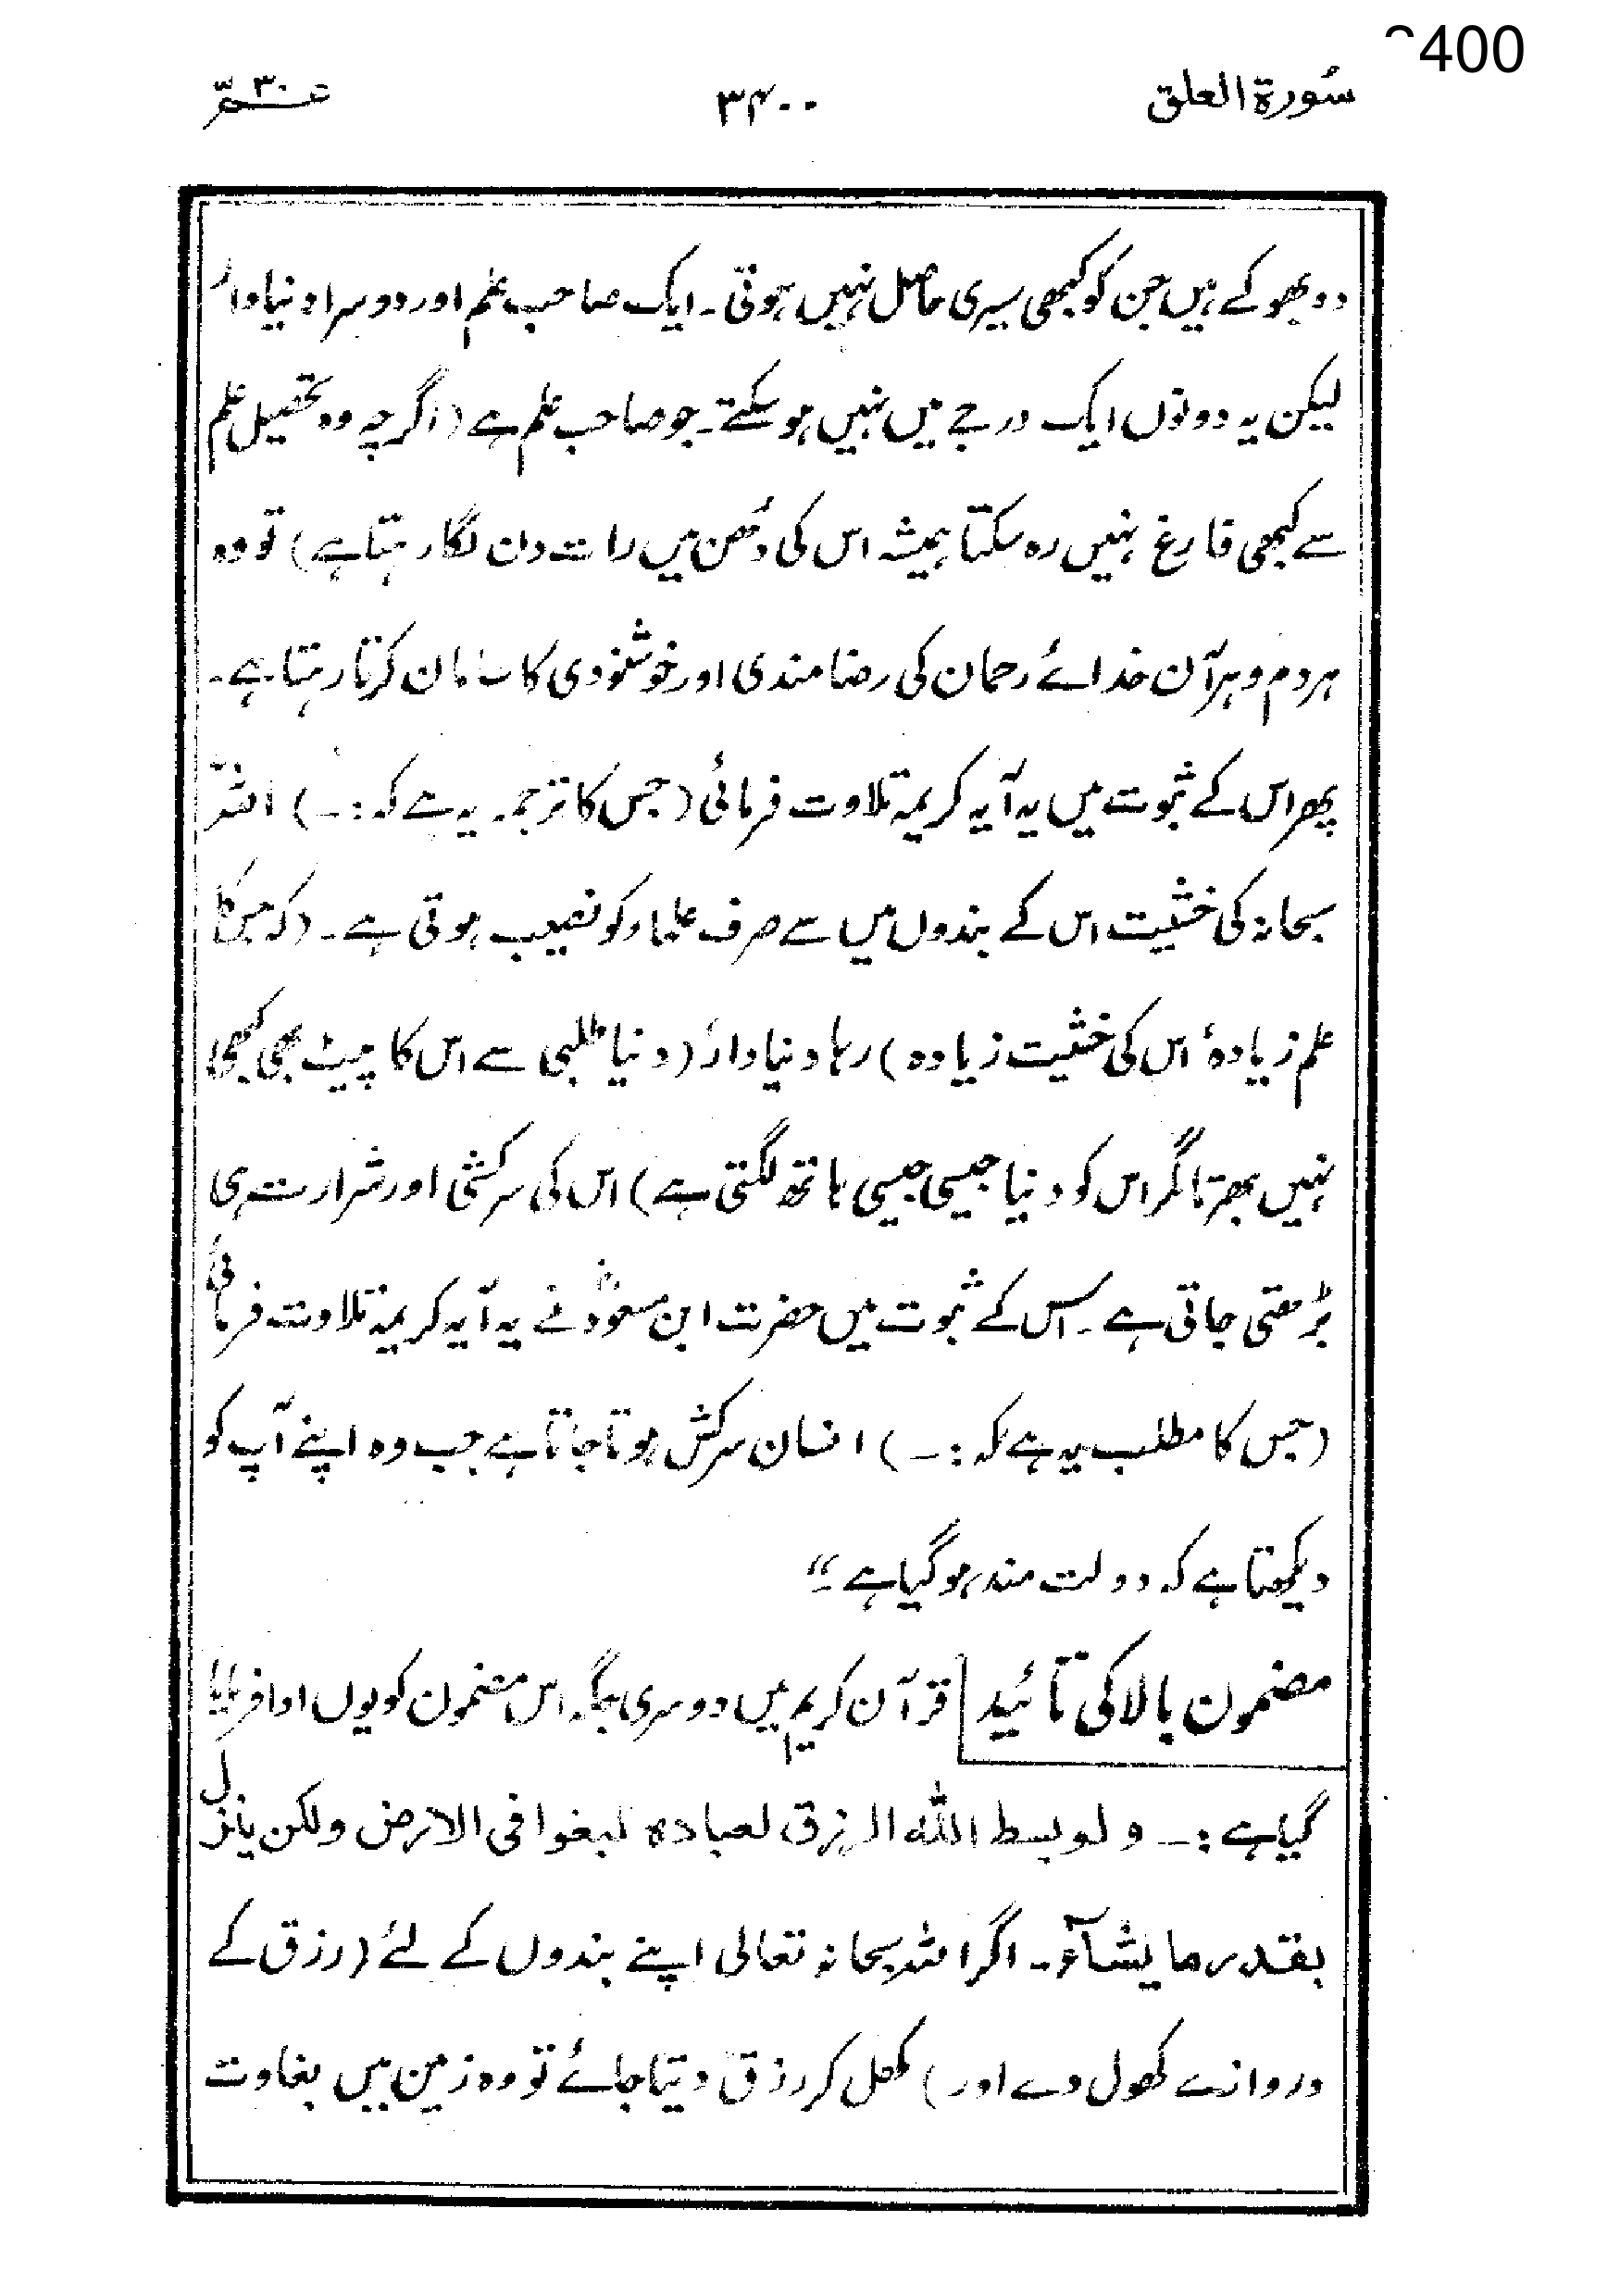 سُورۃ العلق ۳۴۰۰ عمّ ۳۰
دو بھوکے ہیں جن کو کبھی سیری حاصل نہیں ہوتی۔ ایک صاحب علم اور دوسرا دنیادار
لیکن یہ دونوں ایک درجے میں نہیں ہو سکتے۔ جو صاحب علم ہے (اگرچہ وہ تحصیل علم
سے کبھی فارغ نہیں رہ سکتا ہمیشہ اس کی دُھن میں رات دن لگا رہتا ہے) تو وہ
ہر دم و ہر آن خدائے رحمان کی رضامندی اور خوشنودی کا سامان کرتا رہتا ہے۔
پھر اس کے ثبوت میں یہ آیہ کریمہ تلاوت فرمائی (جس کا ترجمہ یہ ہے کہ :۔) اللہ
سبحانہ کی خشیت اس کے بندوں میں سے صرف علماء کو نصیب ہوتی ہے۔ (کہ جس کا
علم زیادہ اس کی خشیت زیادہ) رہا دنیادار (دنیا طلبی سے اس کا پیٹ بھی کبھی
نہیں بھرتا مگر اس کو دنیا جیسی جیسی ہاتھ لگتی ہے) اس کی سرکشی اور شرارت ہی
بڑھتی جاتی ہے۔ اس کے ثبوت میں حضرت ابن مسعودؓ نے یہ آیہ کریمہ تلاوت فرمائی
(جس کا مطلب یہ ہے کہ :۔) انسان سرکش ہوتا جاتا ہے جب وہ اپنے آپ کو
دیکھتا ہے کہ دولت مند ہو گیا ہے۔“
مضمون بالا کی تائید قرآن کریم میں دوسری جگہ اس مضمون کو یوں ادا فرمایا
گیا ہے :۔ ولو بسط اللّٰہ الرزق لعبادہ لبغوا فی الارض ولکن ینزل
بقدر ما یشآء۔ اگر اللہ سبحانہ تعالی اپنے بندوں کے لئے (رزق کے
دروازے کھول دے اور) کھل کر رزق دیتا جائے تو وہ زمین میں بغاوت